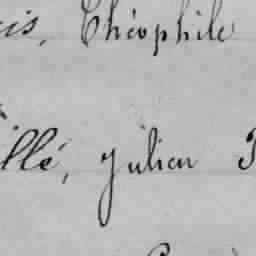 cis, Théophile
illé, Julien